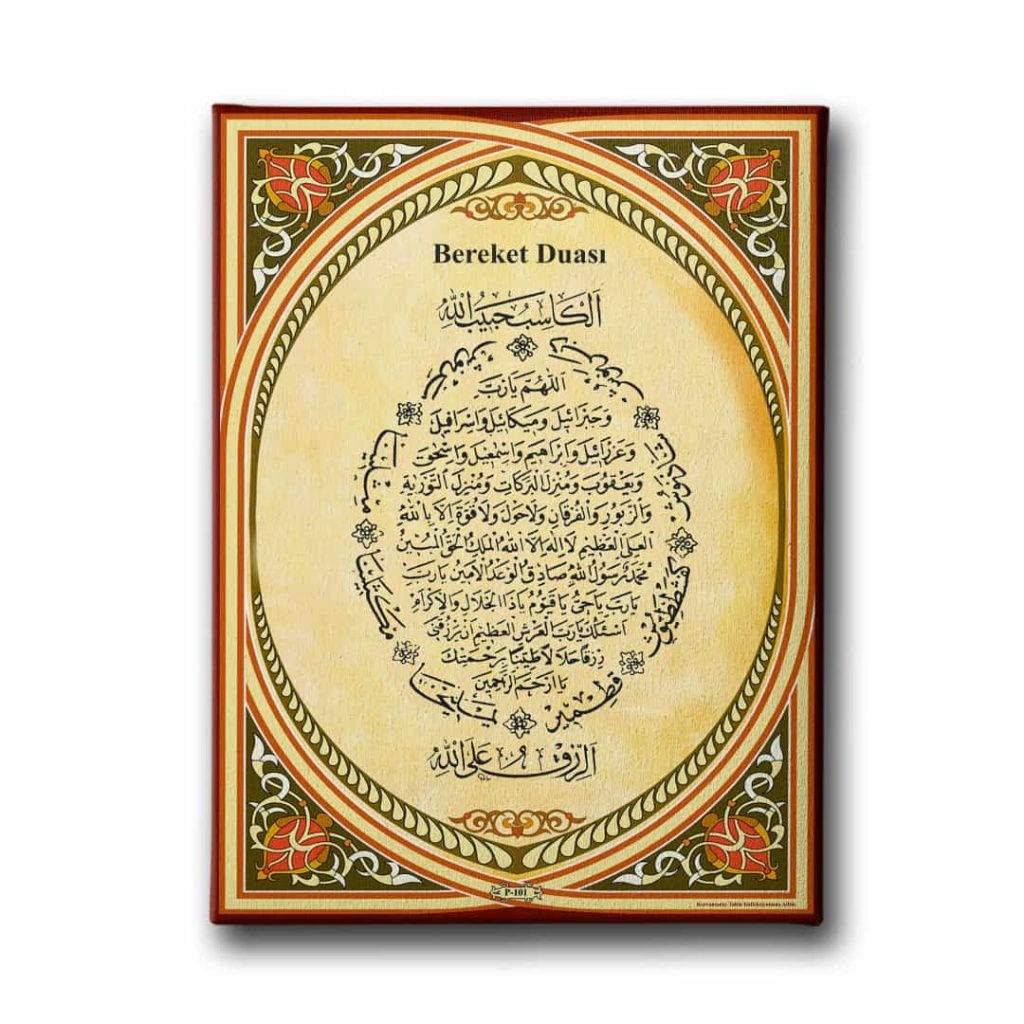 Bereket Duası
اَلْكَاسِبُ حَبِيبُ اللّٰهِ
اَللّٰهُمَّ يَارَبَّ
وَجَبْرَائِيلَ وَمِيكَائِيلَ وَاِسْرَافِيلَ
وَعَزْرَائِيلَ وَاِبْرَاهِيمَ وَاِسْمٰعِيلَ وَاِسْحٰقَ
وَيَعْقُوبَ وَمُنْزِلَ الْبَرَكَاتِ وَمُنْزِلَ التَّوْرٰيةِ
وَالزَّبُورِ وَالْفُرْقَانِ وَلَاحَوْلَ وَلَاقُوَّةَ اِلَّا بِاللّٰهِ
الْعَلِىِّ الْعَظِيمِ لَا اِلٰهَ اِلَّا اللّٰهُ الْمَلِكُ الْحَقُّ الْمُبِينُ
مُحَمَّدٌ رَسُولُ اللّٰهِ صَادِقُ الْوَعْدِ الْاَمِينُ يَارَبِّ
يَارَبِّ يَاحَىُّ يَاقَيُّومُ يَاذَا الْجَلَالِ وَالْاِكْرَامِ
اَسْئَلُكَ يَارَبَّ الْعَرْشِ الْعَظِيمِ اَنْ تَرْزُقَنِى
رِزْقًا حَلَالًا طَيِّبًا بِرَحْمَتِكَ
يَا اَرْحَمَ الرَّاحِمِينَ
يَمْلِيخَا
مَكْثَلِينَا
مَثْلِينَا
مَرْنُوشْ
دَبَرْنُوشْ
شَاذَنُوشْ
كَفَشْطَطَيُّوشْ
قِطْمِيرْ
اَلرِّزْقُ عَلَى اللّٰهِ
P-101